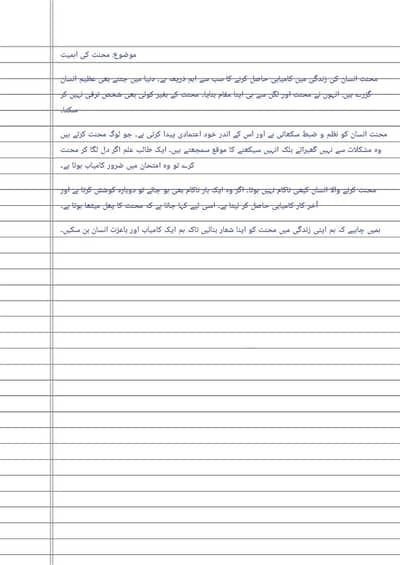 موضوع: محنت کی اہمیت
محنت انسان کی زندگی میں کامیابی حاصل کرنے کا سب سے اہم ذریعہ ہے۔ دنیا میں جتنے بھی عظیم انسان
گزرے ہیں، انہوں نے محنت اور لگن سے ہی اپنا مقام بنایا۔ محنت کے بغیر کوئی بھی شخص ترقی نہیں کر
سکتا۔
محنت انسان کو نظم و ضبط سکھاتی ہے اور اس کے اندر خود اعتمادی پیدا کرتی ہے۔ جو لوگ محنت کرتے ہیں
وہ مشکلات سے نہیں گھبراتے بلکہ انہیں سیکھنے کا موقع سمجھتے ہیں۔ ایک طالب علم اگر دل لگا کر محنت
کرے تو وہ امتحان میں ضرور کامیاب ہوتا ہے۔
محنت کرنے والا انسان کبھی ناکام نہیں ہوتا۔ اگر وہ ایک بار ناکام بھی ہو جائے تو دوبارہ کوشش کرتا ہے اور
آخر کار کامیابی حاصل کر لیتا ہے۔ اسی لیے کہا جاتا ہے کہ محنت کا پھل میٹھا ہوتا ہے۔
ہمیں چاہیے کہ ہم اپنی زندگی میں محنت کو اپنا شعار بنائیں تاکہ ہم ایک کامیاب اور باعزت انسان بن سکیں۔